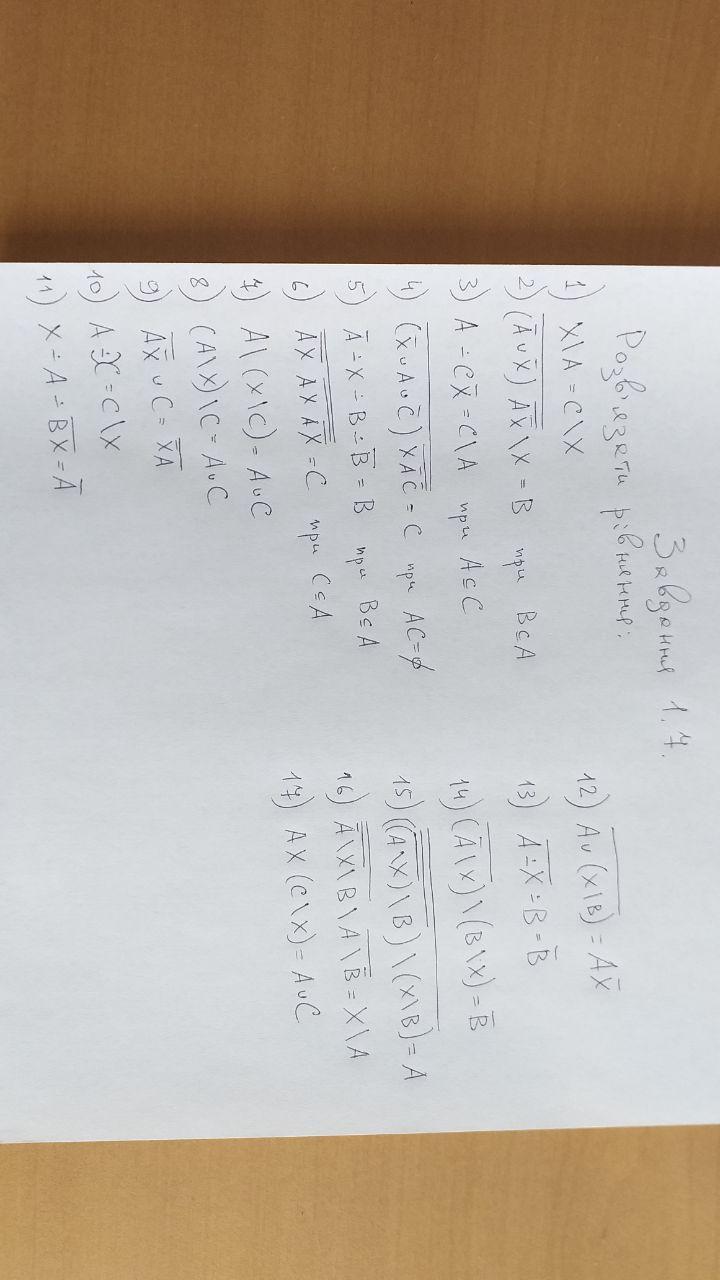 Завдання 1.7.
Розв'язати рівняння:
1) X\A = C\X
2) \overline{(Ā∪X̄) \overline{AX}}\X = B при B⊆A
3) A÷CX̄ = C\A при A⊆C
4) \overline{(X̄∪A∪C̄) XĀC̄} = C при AC=∅
5) Ā÷X÷B÷B̄ = B при B⊆A
6) AX AX AX = C при C⊆A
7) A\(X\C) = A∪C
8) (A\X)\C = A∪C
9) AX ∪ C = XA
10) A÷X = C\X
11) X÷A÷\overline{BX} = Ā
12) \overline{A∪(X\B)} = AX̄
13) \overline{A÷X}÷B = B̄
14) \overline{(Ā\X)}\(B\X) = B̄
15) ((A\X)\B)\(X\B) = A
16) A\X\B\A\B = X\A
17) AX(C\X) = A∪C